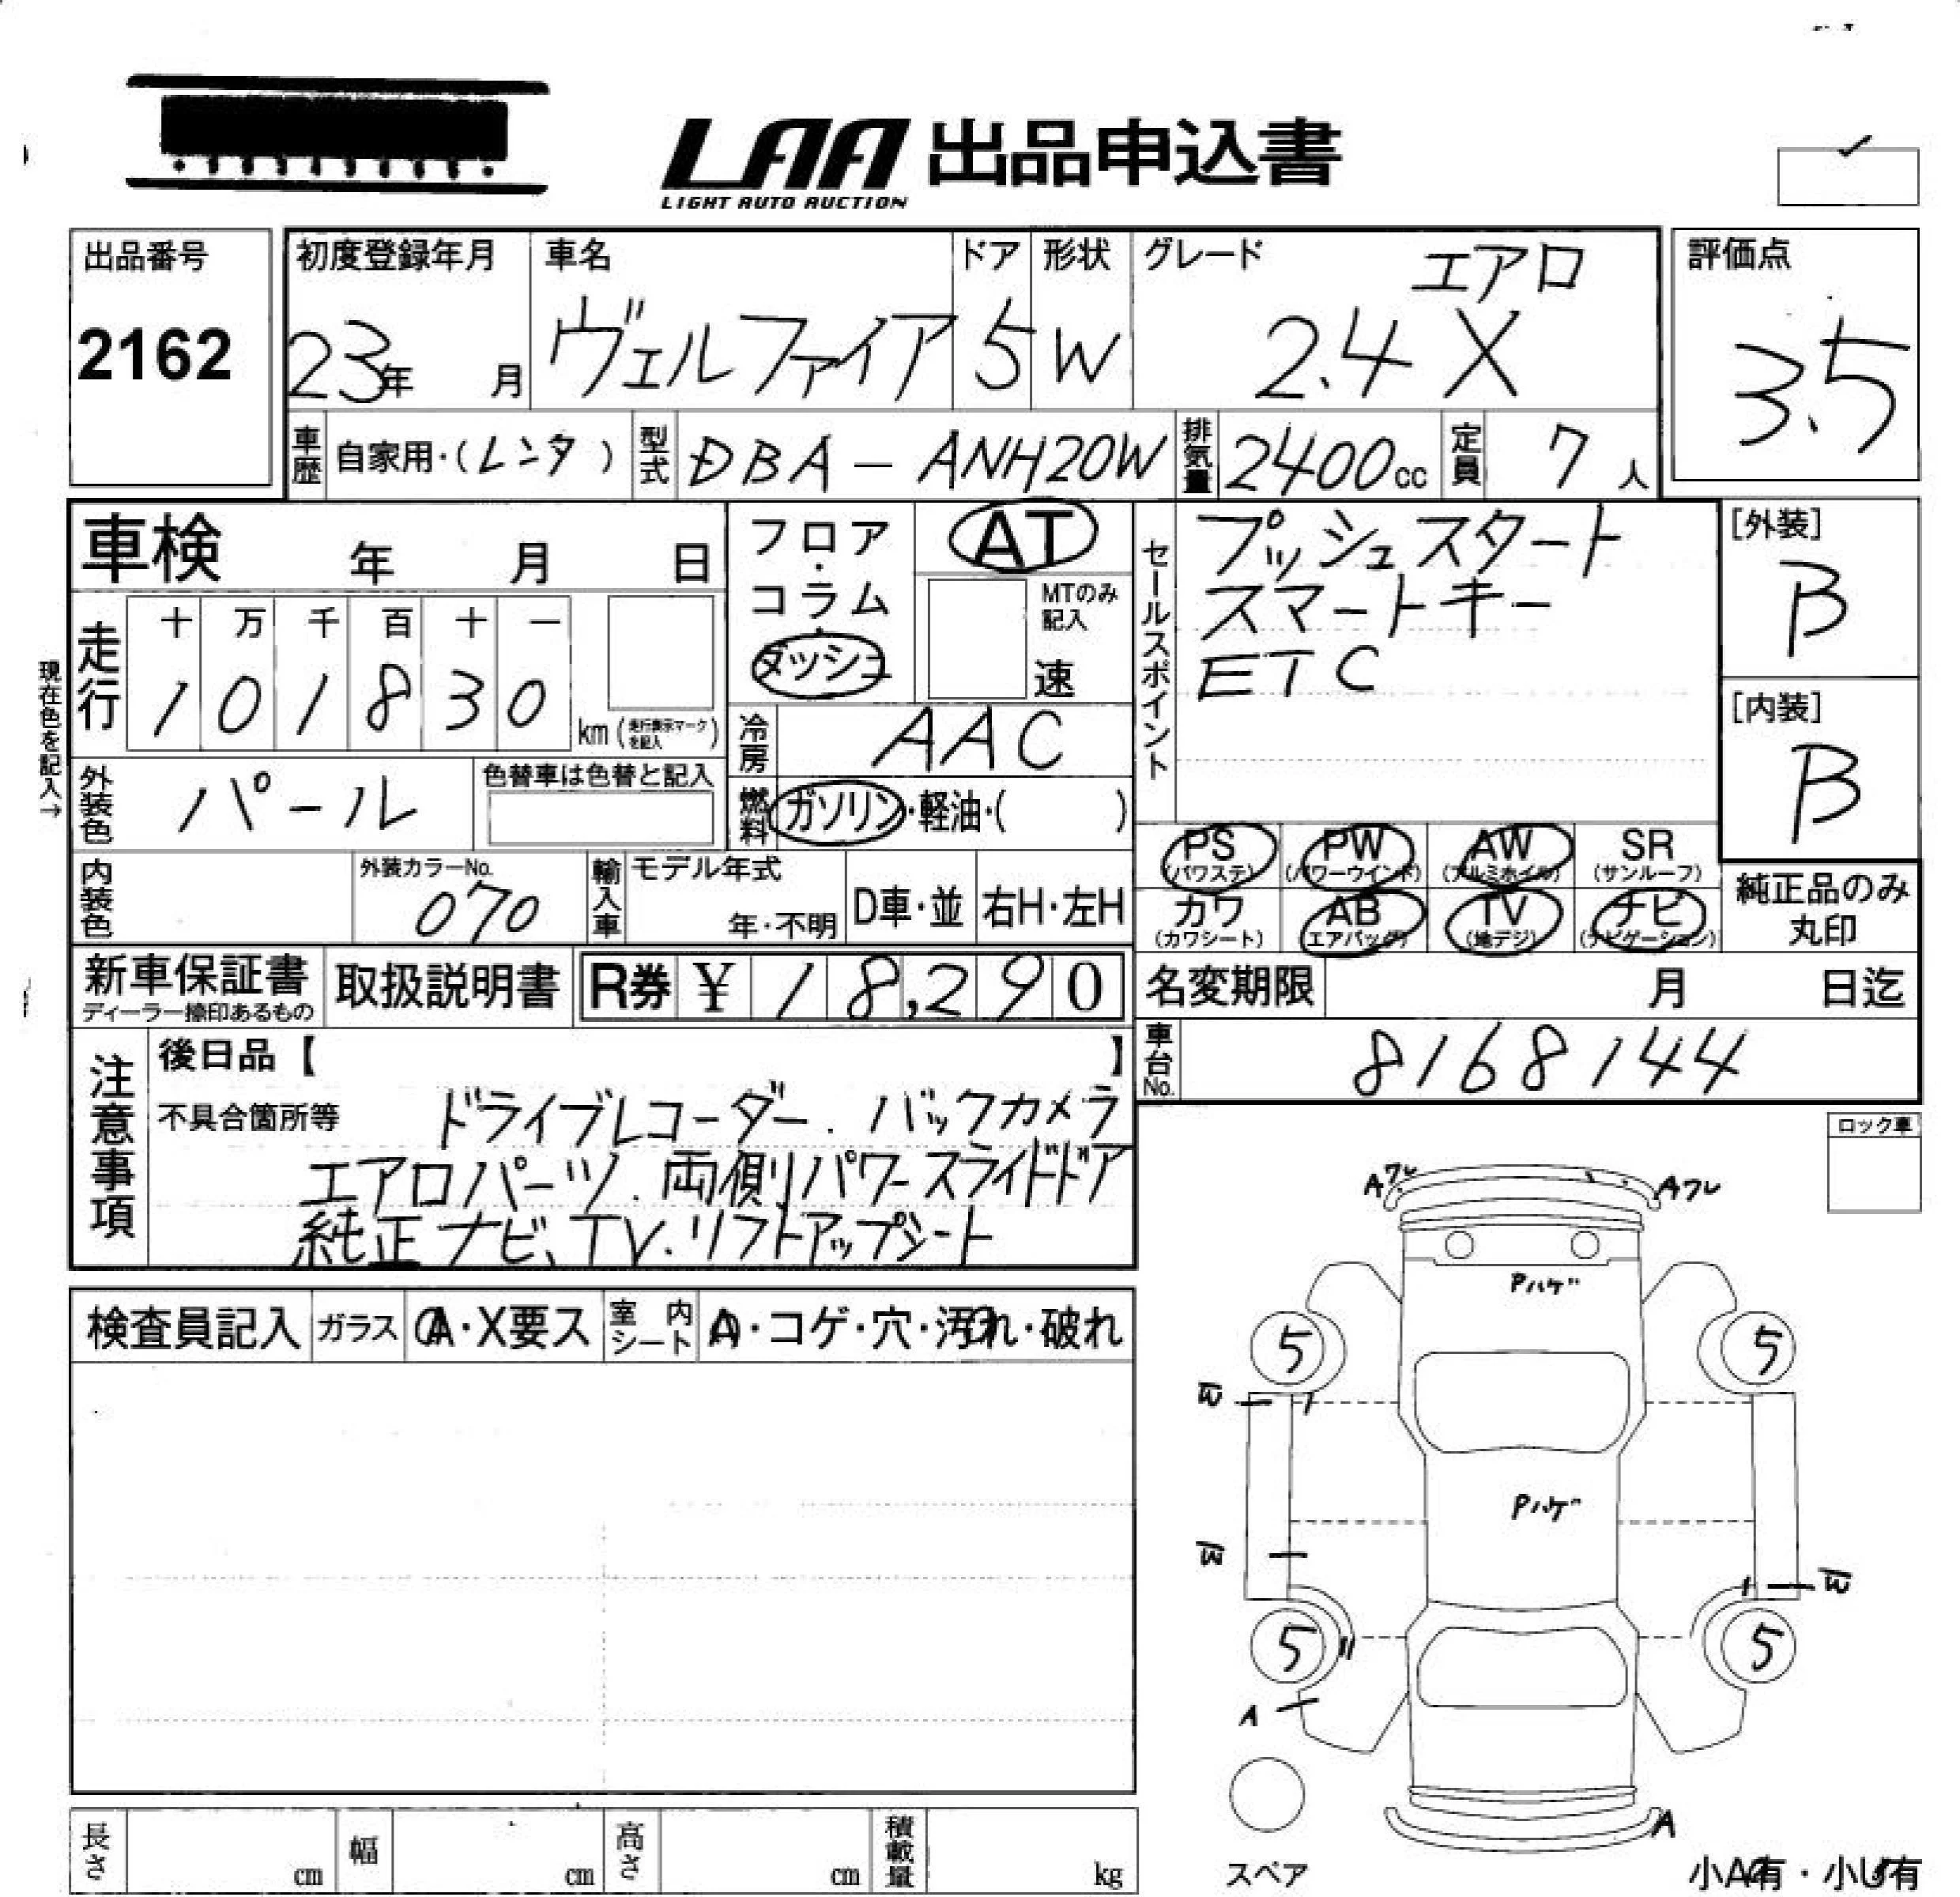 LAA 出品申込書
LIGHT AUTO AUCTION
出品番号
2162
初度登録年月
23年 月
車名
ヴェルファイア
ドア
5
形状
W
グレード
エアロ
2.4 X
評価点
3.5
車歴 自家用・(レンタ )
型式 DBA - ANH20W
排気量 2400cc
定員 7 人
車検 年 月 日
フロア・コラム・ダッシュ
AT
MTのみ記入
速
セールスポイント
プッシュスタート
スマートキー
ETC
[外装]
B
[内装]
B
現在色を記入→
走行
十 万 千 百 十 一
1 0 1 8 3 0
km (走行表示マークを記入)
冷房 AAC
外装色 パール
色替車は色替と記入
燃料 ガソリン・軽油・( )
PS (パワステ) PW (パワーウインド) AW (アルミホイル) SR (サンルーフ)
カワ (カワシート) AB (エアバッグ) TV (地デジ) ナビ (ナビゲーション)
純正品のみ丸印
内装色
外装カラーNo.
070
輸入車
モデル年式
年・不明
D車・並
右H・左H
新車保証書
ディーラー捺印あるもの
取扱説明書
R券 ¥ 18,290
名変期限 月 日迄
車台No. 8168144
注意事項
後日品【 】
不具合箇所等 ドライブレコーダー. バックカメラ
エアロパーツ. 両側パワースライドドア
純正ナビ、TV.リフトアップシート
ロック車
検査員記入 ガラス A・X要ス 室内シート A・コゲ・穴・汚れ・破れ
Aワレ
Aワレ
Pハゲ
5
5
W
Pハゲ
W
W
5
5
A
A
スペア
小A有・小U有
長さ cm
幅 cm
高さ cm
積載量 kg